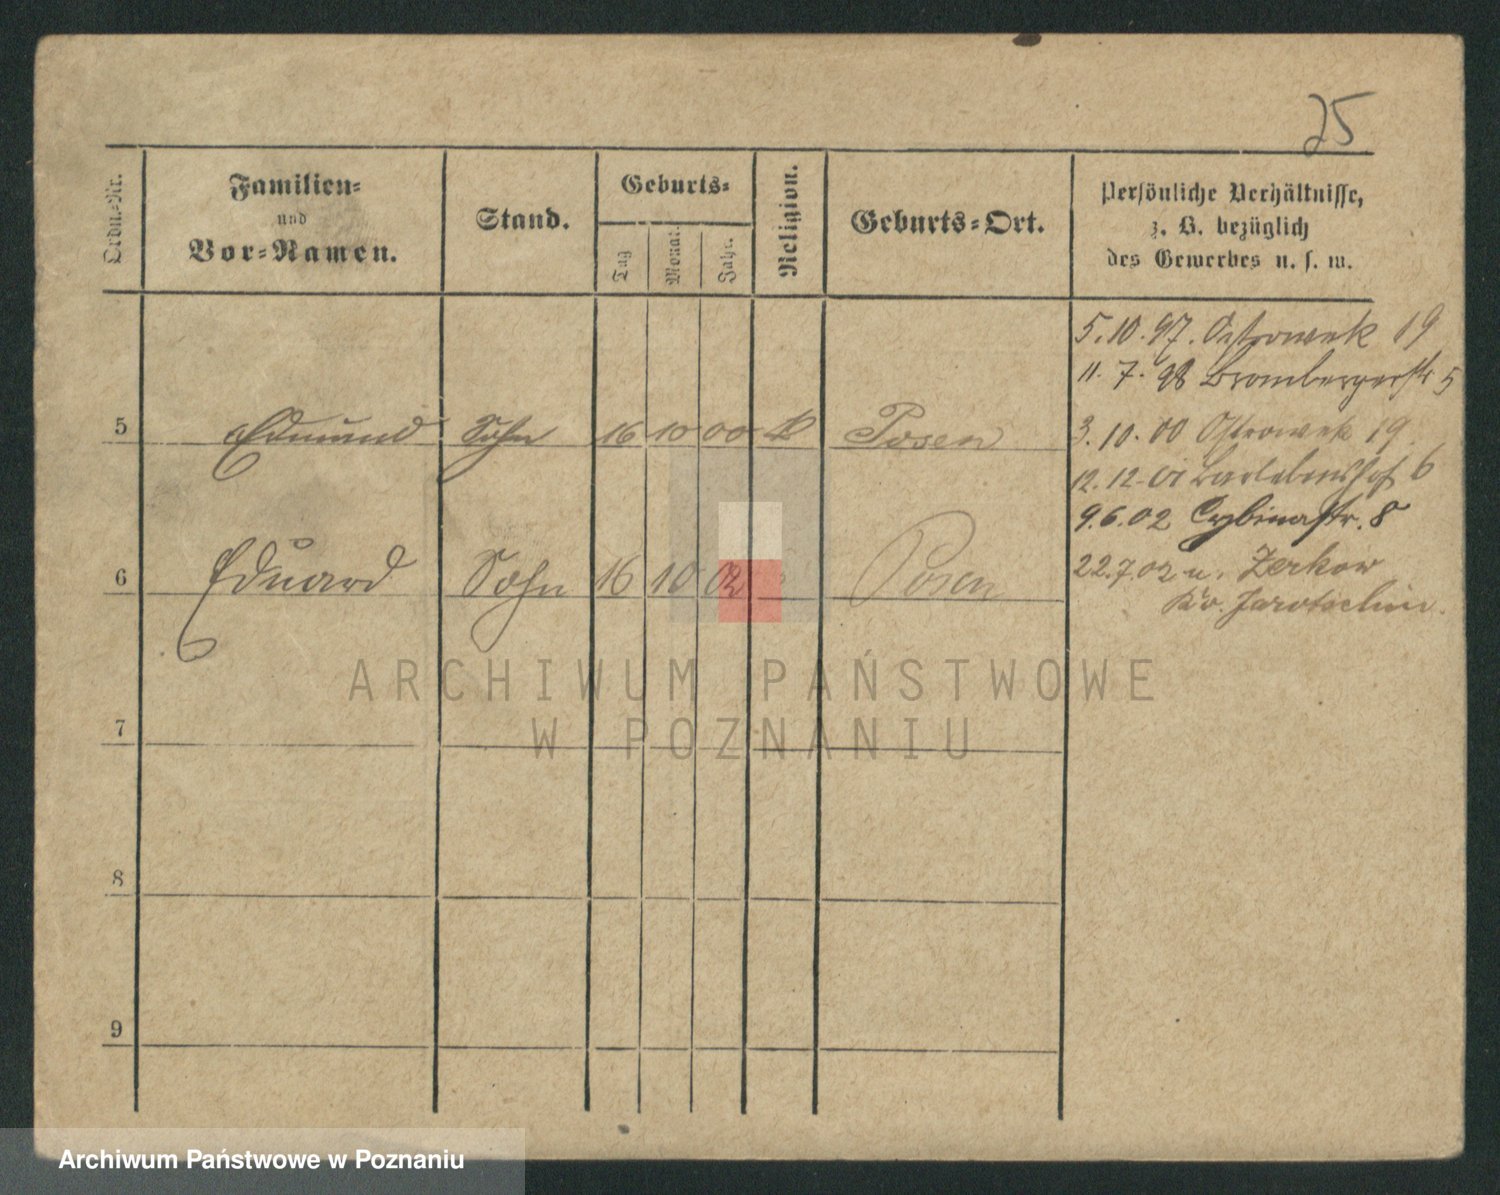 25
Ordn.-Nr.
Familien-
und
Vor-Namen.
Stand.
Geburts-
Tag
Monat.
Jahr.
Religion.
Geburts-Ort.
Persönliche Verhältnisse,
z. B. bezüglich
des Gewerbes u. s. w.
5.10.97. Ostrowek 19
11. 7. 98 Brombergerstr 5
5 Edmund Sohn 16 10 00 k Posen
3. 10. 00 Ostrowek 19
12. 12. 01 Barlebenshof 6
9.6.02 Cybinastr. 8
6 Eduard Sohn 16 10 02 Posen
22.7.02 n. Zerkow
Kr. Jarotschin.
7
8
9
ARCHIWUM PAŃSTWOWE
W POZNANIU
Archiwum Państwowe w Poznaniu